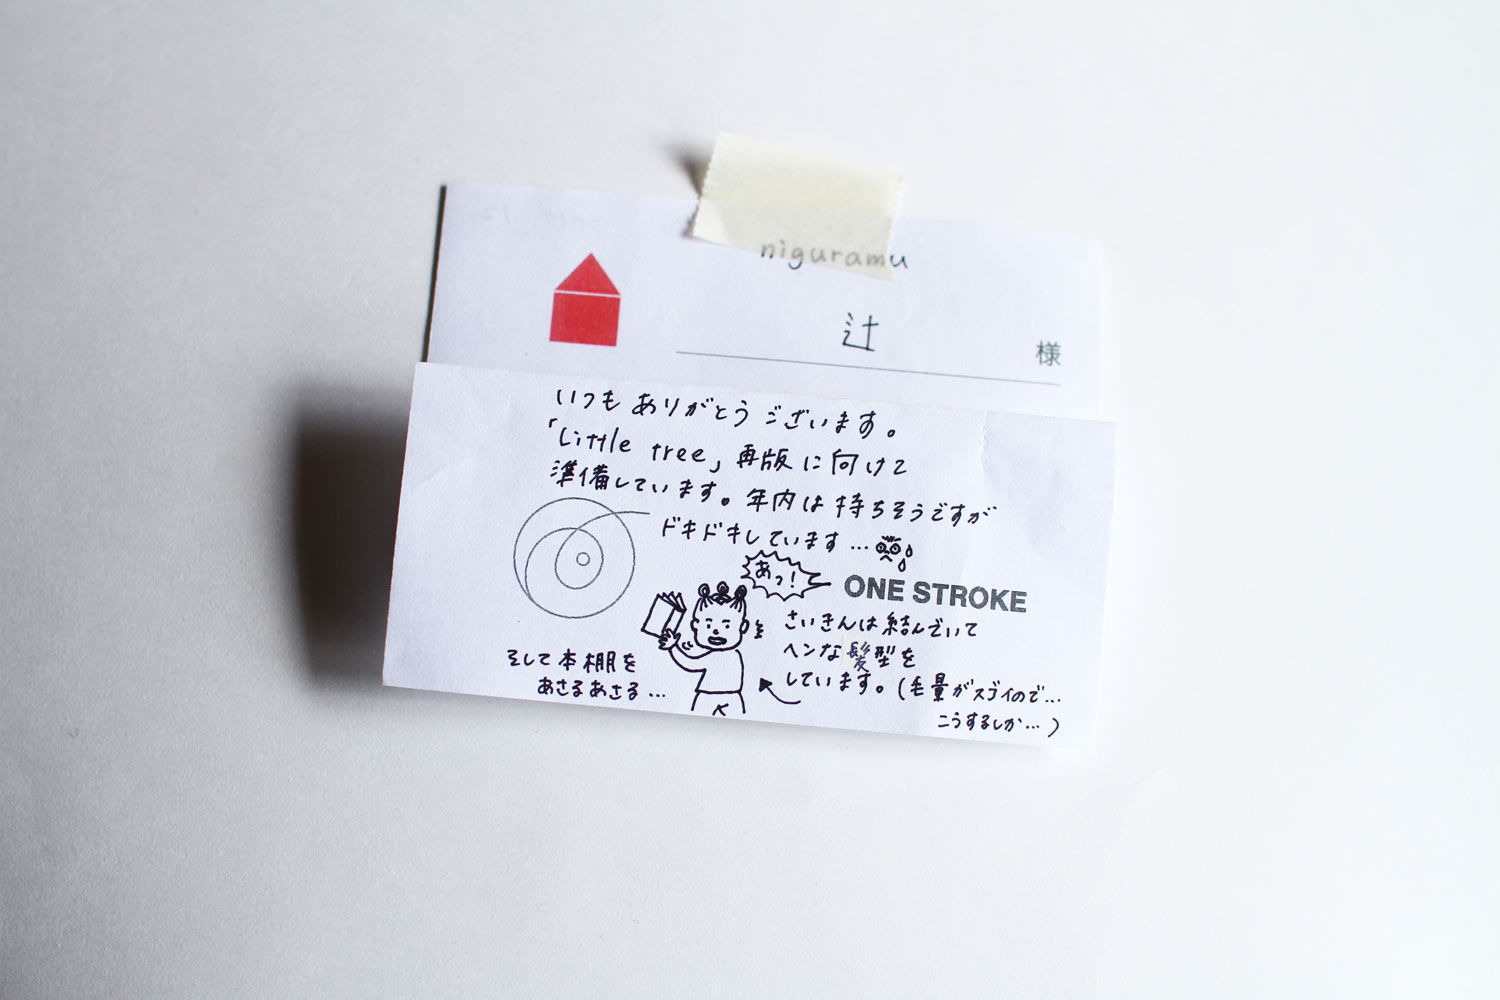 niguramu
辻
様
いつもありがとうございます。
「Little tree」再版に向けて
準備しています。年内は持ちそうですが
ドキドキしています…
あっ!
ONE STROKE
さいきんは結んでいて
ヘンな髪型を
しています。(毛量がスゴイので…
こうするしか…)
そして本棚を
あさるあさる…